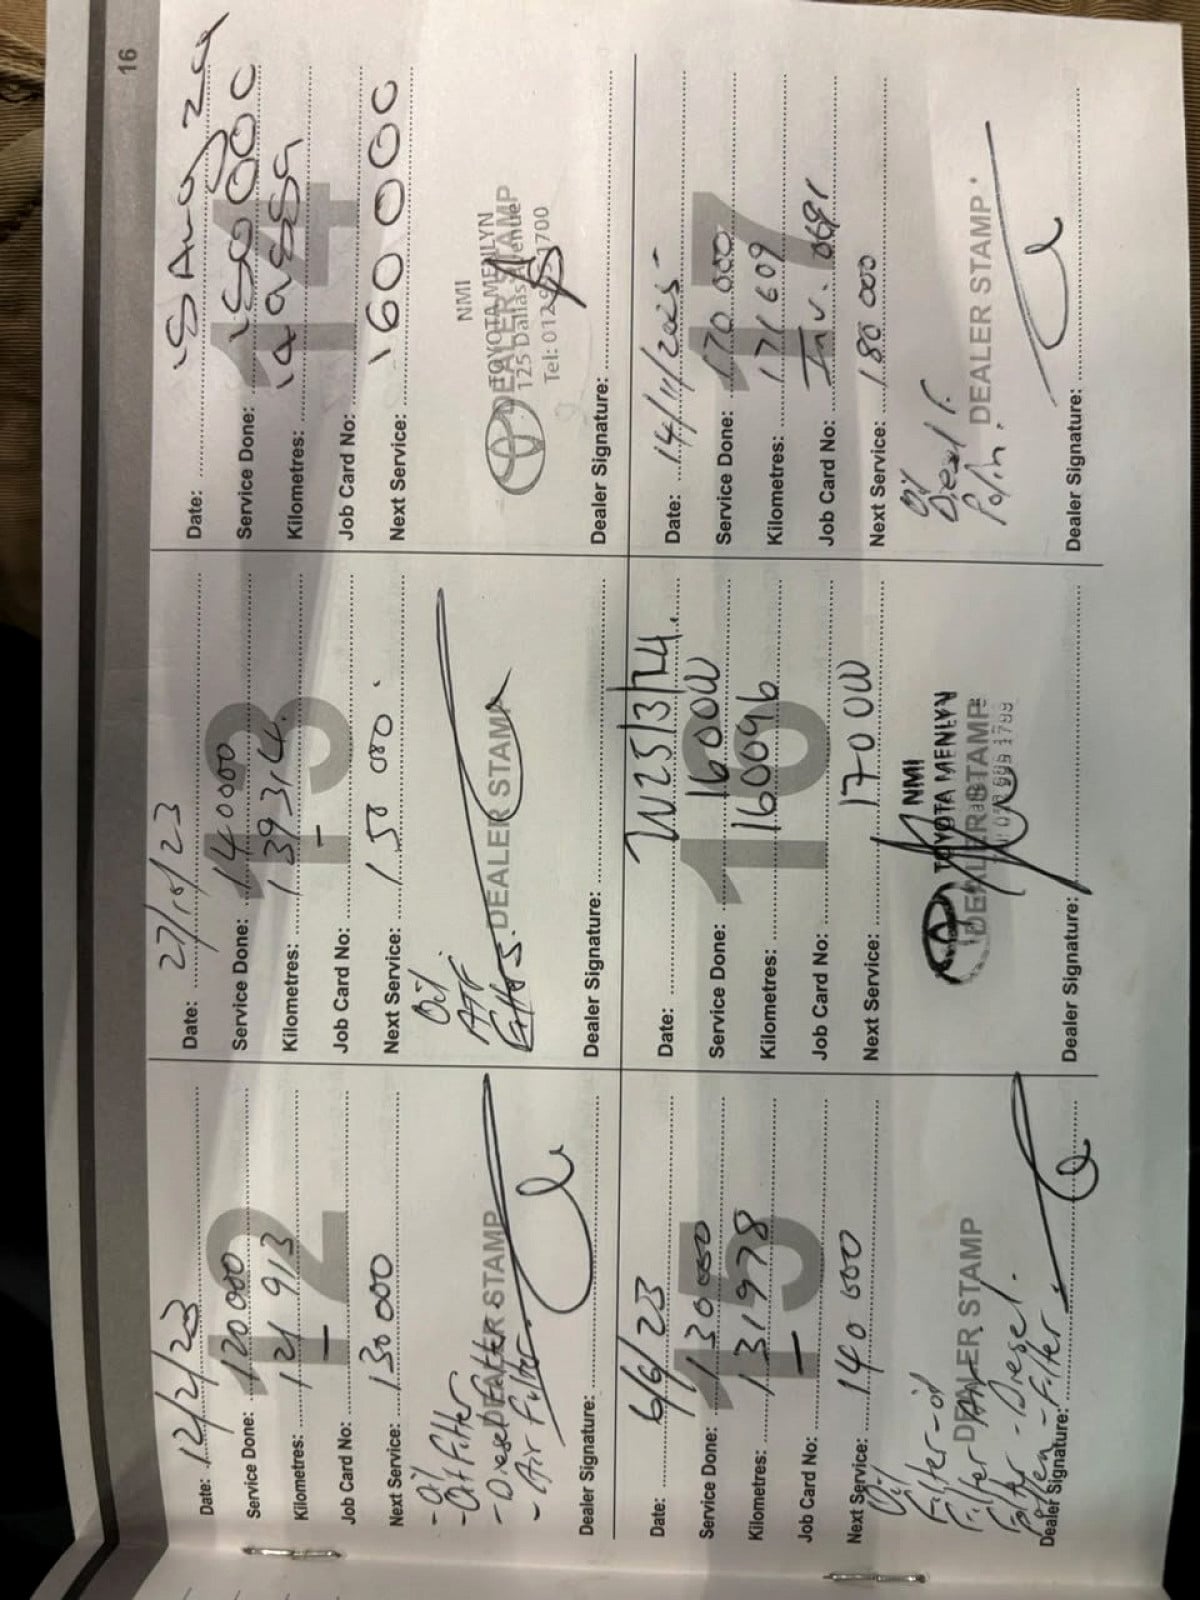 16
12
Date: 12/2/23
Service Done: 120 000
Kilometres: 121 913
Job Card No: –
Next Service: 130 000
- Oil
- Oil Filter
- Diesel Filter
- Air Filter
DEALER STAMP
Dealer Signature:
13
Date: 27/10/23
Service Done: 140000
Kilometres: 139314
Job Card No: –
Next Service: 150 000.
Oil
ATF
Filters.
DEALER STAMP
Dealer Signature:
14
Date:
Service Done: 150000
Kilometres:
Job Card No:
Next Service: 160000
NMI
TOYOTA MENLYN
125 Dallas Avenue
DEALER STAMP
Dealer Signature:
15
Date: 6/6/23
Service Done: 130 000
Kilometres: 131978
Job Card No: –
Next Service: 140 000
Oil
Filter - oil
Filter Air
Filter - Diesel
Pollen - Filter
DEALER STAMP
Dealer Signature:
16
Date:
Service Done: 16000
Kilometres: 160096
Job Card No:
Next Service: 170 000
NMI
TOYOTA MENLYN
DEALER STAMP
Dealer Signature:
17
Date: 14/11/2025
Service Done: 170 000
Kilometres: 171609
Job Card No: Inv. 0691
Next Service: 180 000
Oil
Diesel F.
DEALER STAMP
Dealer Signature: